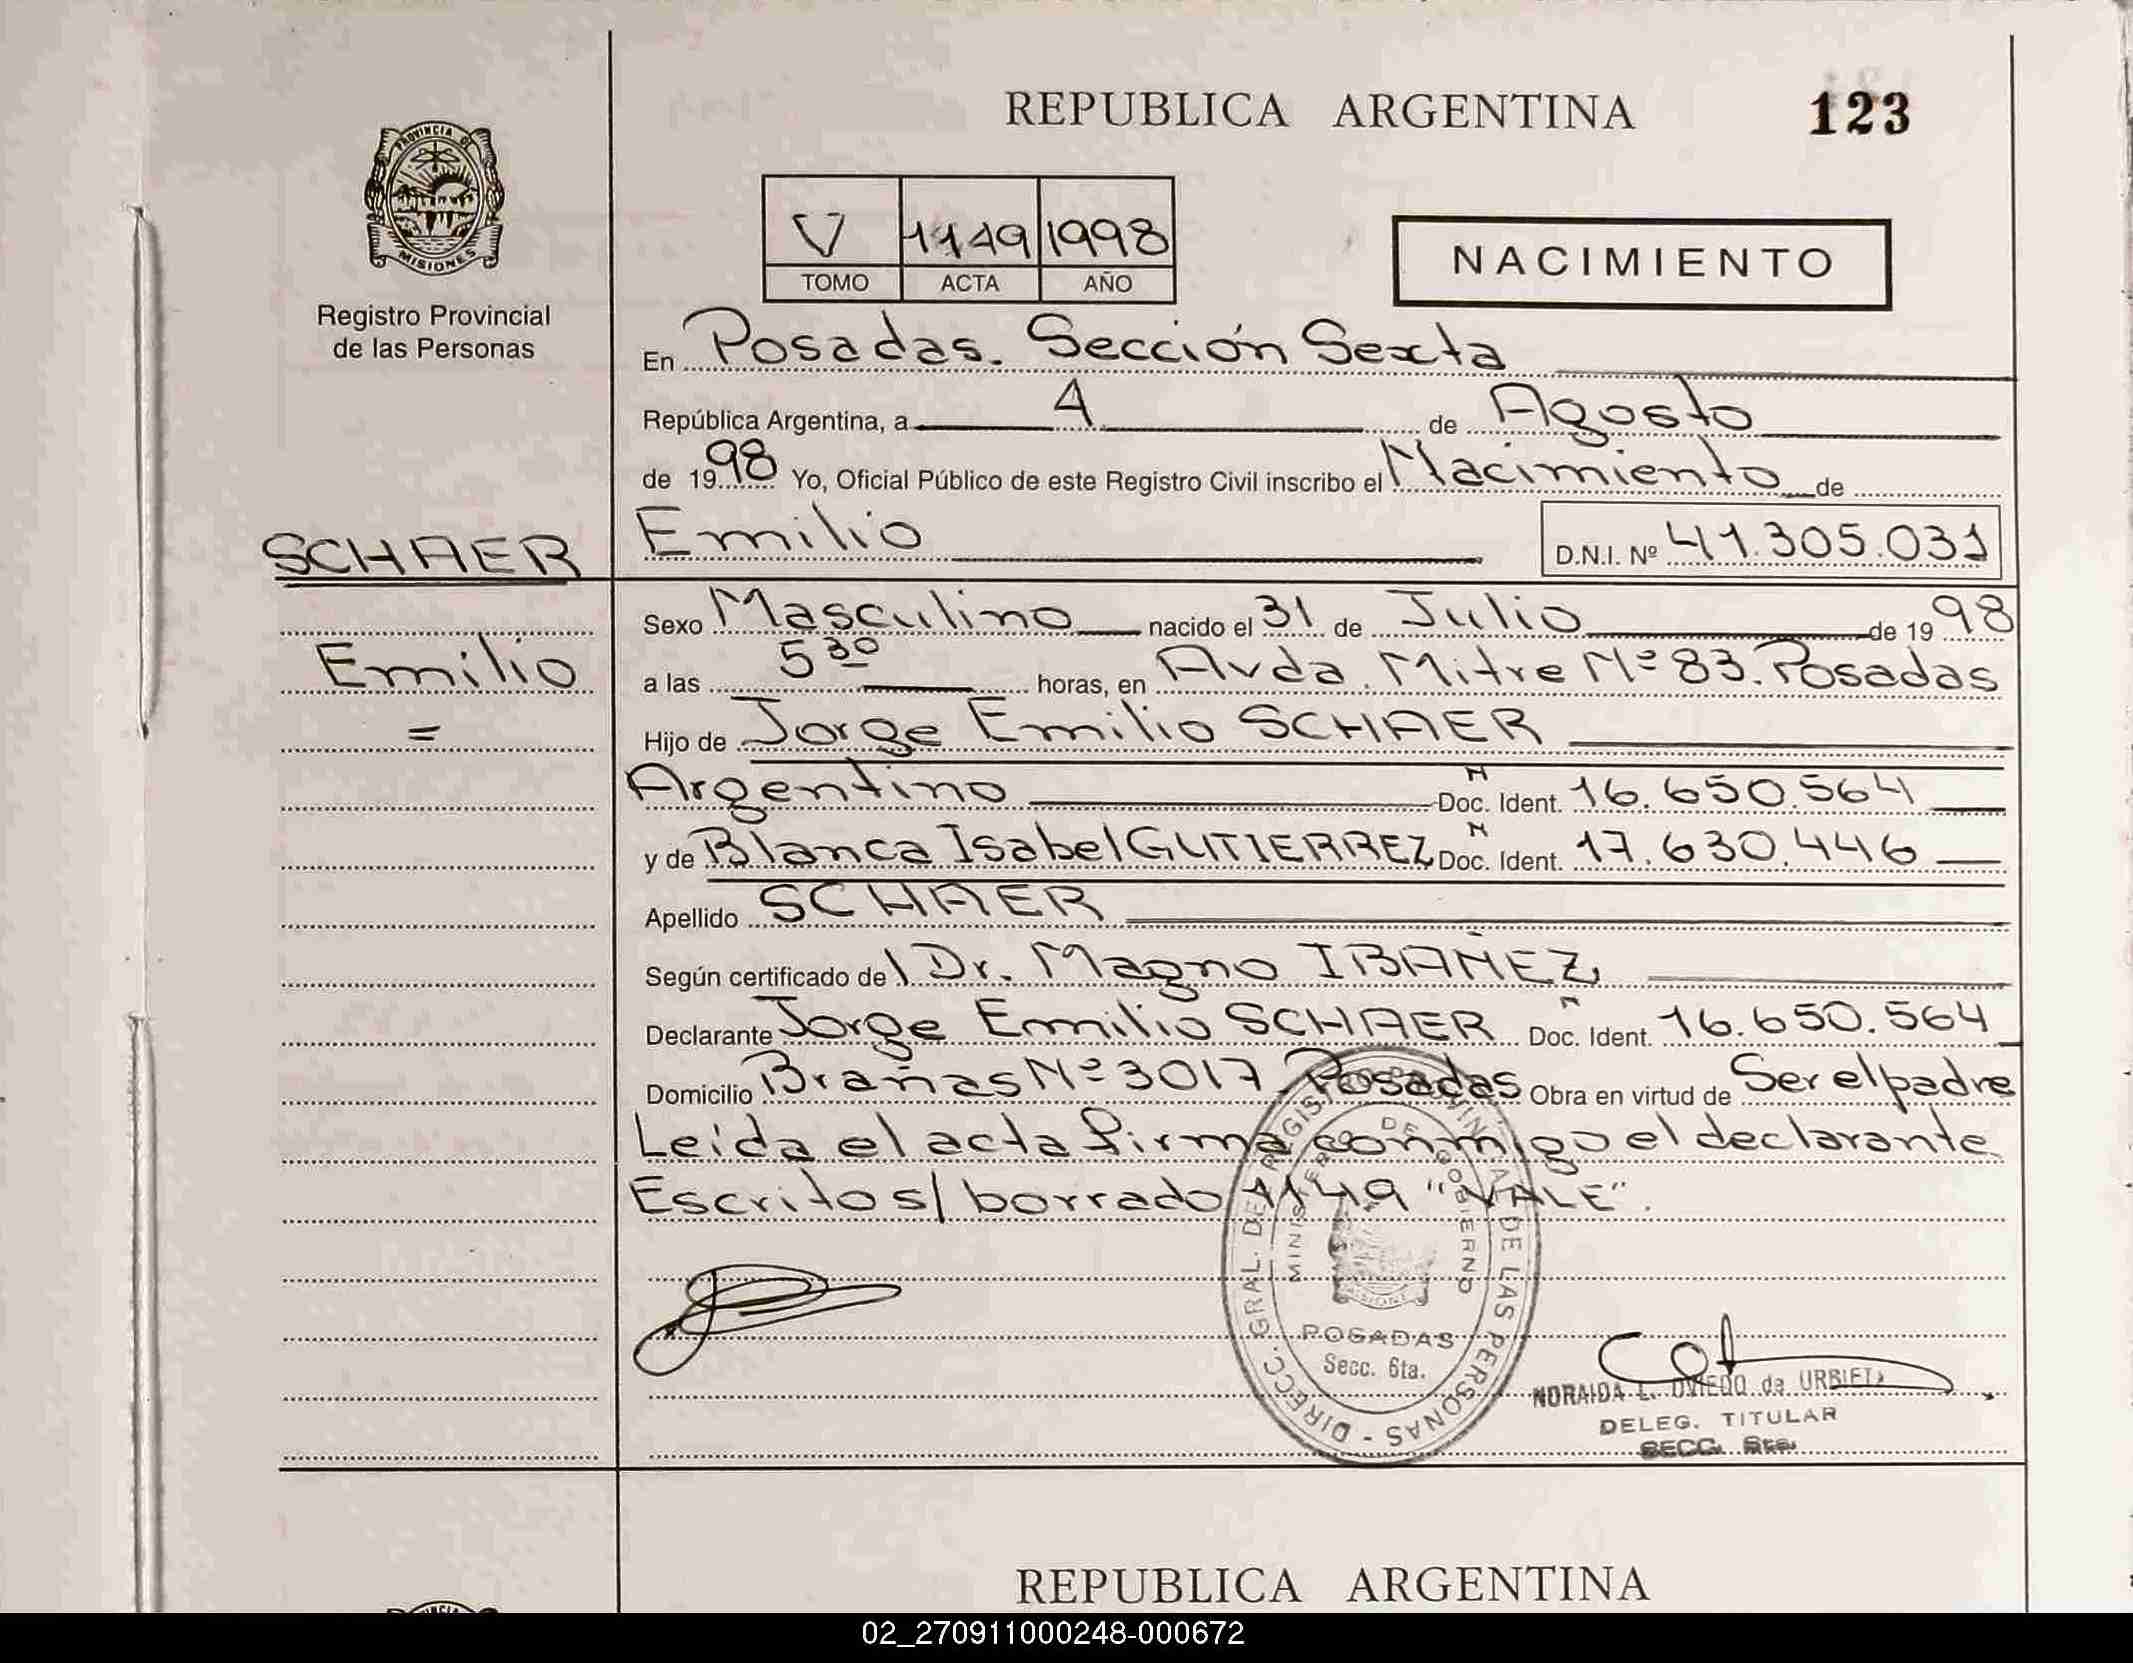 REPUBLICA ARGENTINA
123
PROVINCIA DE
MISIONES
Registro Provincial
de las Personas
V 1149 1998
TOMO ACTA AÑO
NACIMIENTO
En Posadas. Sección Sexta
República Argentina, a 4 de Agosto
de 1998 Yo, Oficial Público de este Registro Civil inscribo el Nacimiento de
SCHAER
Emilio D.N.I. Nº 41.305.031
Sexo Masculino nacido el 31 de Julio de 1998
Emilio
=
a las 5 30 horas, en Avda. Mitre Nº 83. Posadas
Hijo de Jorge Emilio SCHAER
Argentino N Doc. Ident. 16.650.564
y de Blanca Isabel GUTIERREZ N Doc. Ident. 17.630.446
Apellido SCHAER
Según certificado del Dr. Magno IBAÑEZ
Declarante Jorge Emilio SCHAER N Doc. Ident. 16.650.564
Domicilio Brañas Nº 3017 Posadas Obra en virtud de Ser el padre
Leida el acta firma conmigo el declarante
Escrito s/ borrado 1149 "VALE".
DIRECC. GRAL. DEL REGISTRO PROVINCIAL DE LAS PERSONAS -
MINISTERIO DE GOBIERNO
MISIONES
POSADAS
Secc. 6ta.
NORAIDA L. OVIEDO de URBIETA
DELEG. TITULAR
SECC. 6ta.
REPUBLICA ARGENTINA
02_270911000248-000672